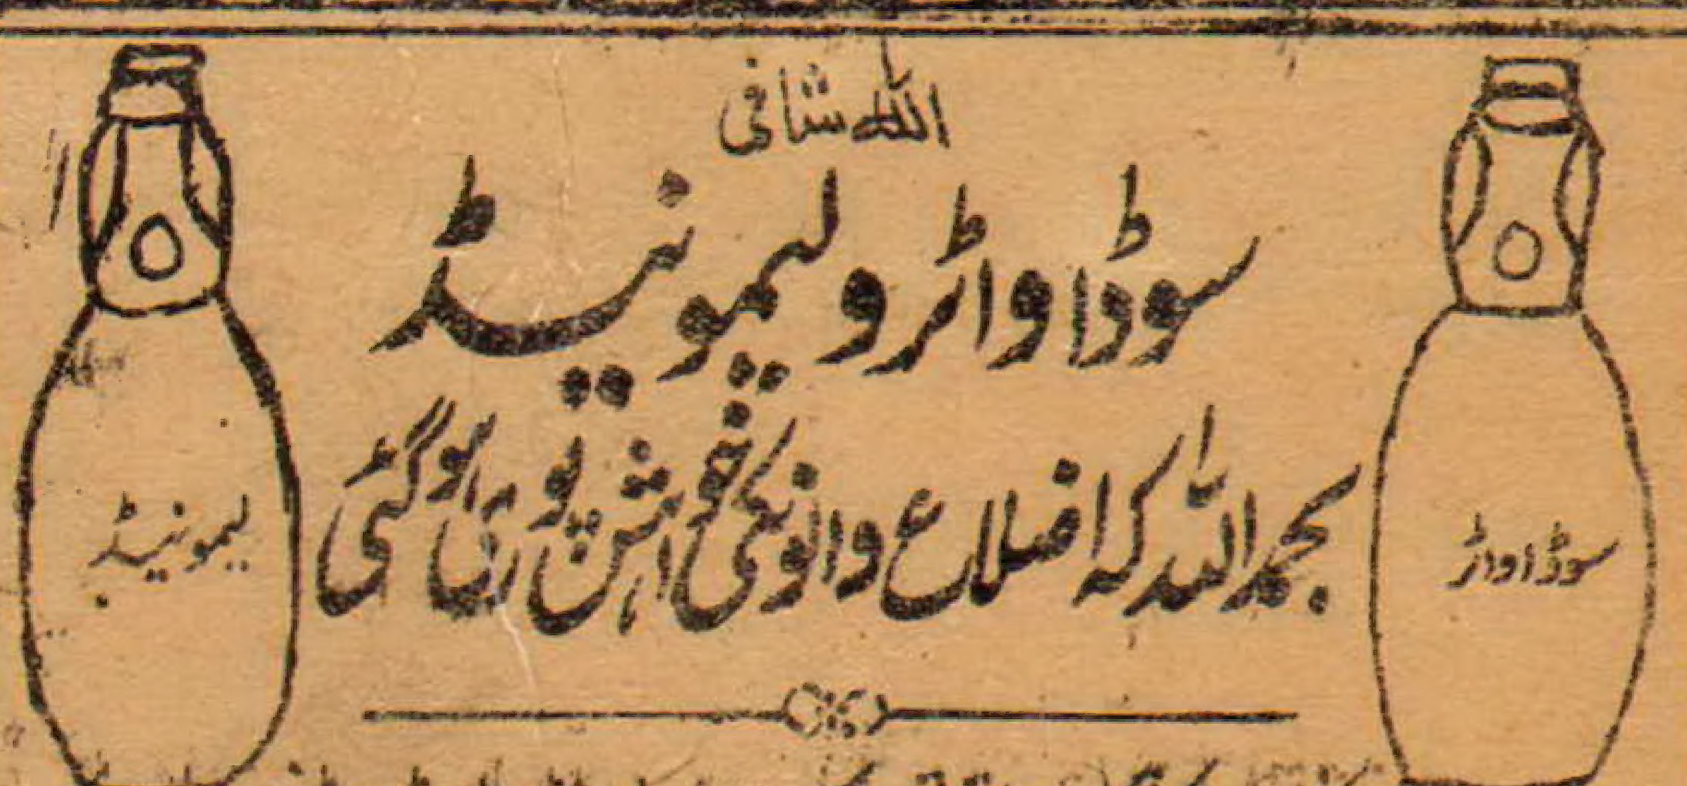 اللہ شافی
سوڈا واٹر و لیمونیڈ
بحمد اللہ کہ اضلاع والونکی خواہش پوری ہوگئی
سوڈا واٹر
لیمونیڈ